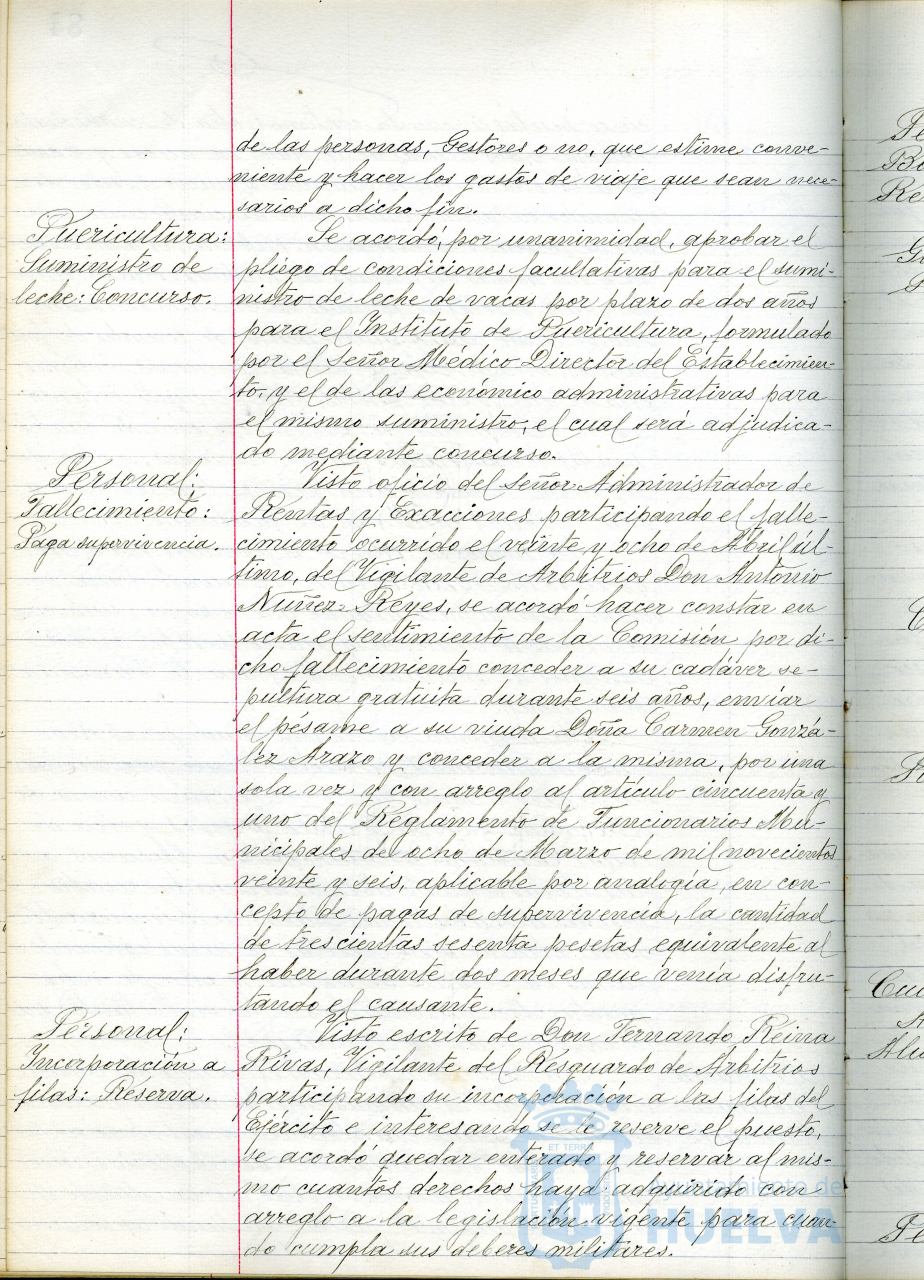 de las personas, Gestores o no, que estime conve-
niente y hacer los gastos de viaje que sean nece-
sarios a dicho fin.
Puericultura:
Suministro de
leche: Concurso.
Se acordó, por unanimidad, aprobar el
pliego de condiciones facultativas para el sumi-
nistro de leche de vacas por plazo de dos años
para el Instituto de Puericultura, formulado
por el Señor Médico Director del Establecimien-
to, y el de las económico administrativas para
el mismo suministro, el cual será adjudica-
do mediante concurso.
Personal:
Fallecimiento:
Paga supervivencia.
Visto oficio del Señor Administrador de
Rentas y Exacciones participando el falle-
cimiento ocurrido el veinte y ocho de Abril úl-
timo, del Vigilante de Arbitrios Don Antonio
Nuñez Reyes, se acordó hacer constar en
acta el sentimiento de la Comisión por di-
cho fallecimiento conceder a su cadáver se-
pultura gratuita durante seis años, enviar
el pésame a su viuda Doña Carmen Gonzá-
lez Arazo y conceder a la misma, por una
sola vez y con arreglo al artículo cincuenta y
uno del Reglamento de Funcionarios Mu-
nicipales de ocho de Marzo de mil novecientos
veinte y seis, aplicable por analogía, en con-
cepto de pagas de supervivencia, la cantidad
de trescientas sesenta pesetas equivalente al
haber durante dos meses que venía disfru-
tando el causante.
Personal:
Incorporación a
filas: Reserva.
Visto escrito de Don Fernando Reina
Rivas, Vigilante del Resguardo de Arbitrios
participando su incorporación a las filas del
Ejército e interesando se le reserve el puesto,
se acordó quedar enterado y reservar al mis-
mo cuantos derechos haya adquirido con
arreglo a la legislación vigente para cuan-
do cumpla sus deberes militares.
Ayuntamiento de
HUELVA